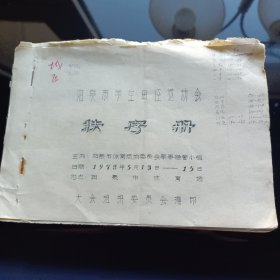 阳泉市学生田径运动会
秩序册
主办：阳泉市体育运动委员会竞赛领导小组
日期：1978年5月13日——15日
地点：阳泉市体育场
大会组织委员会编印